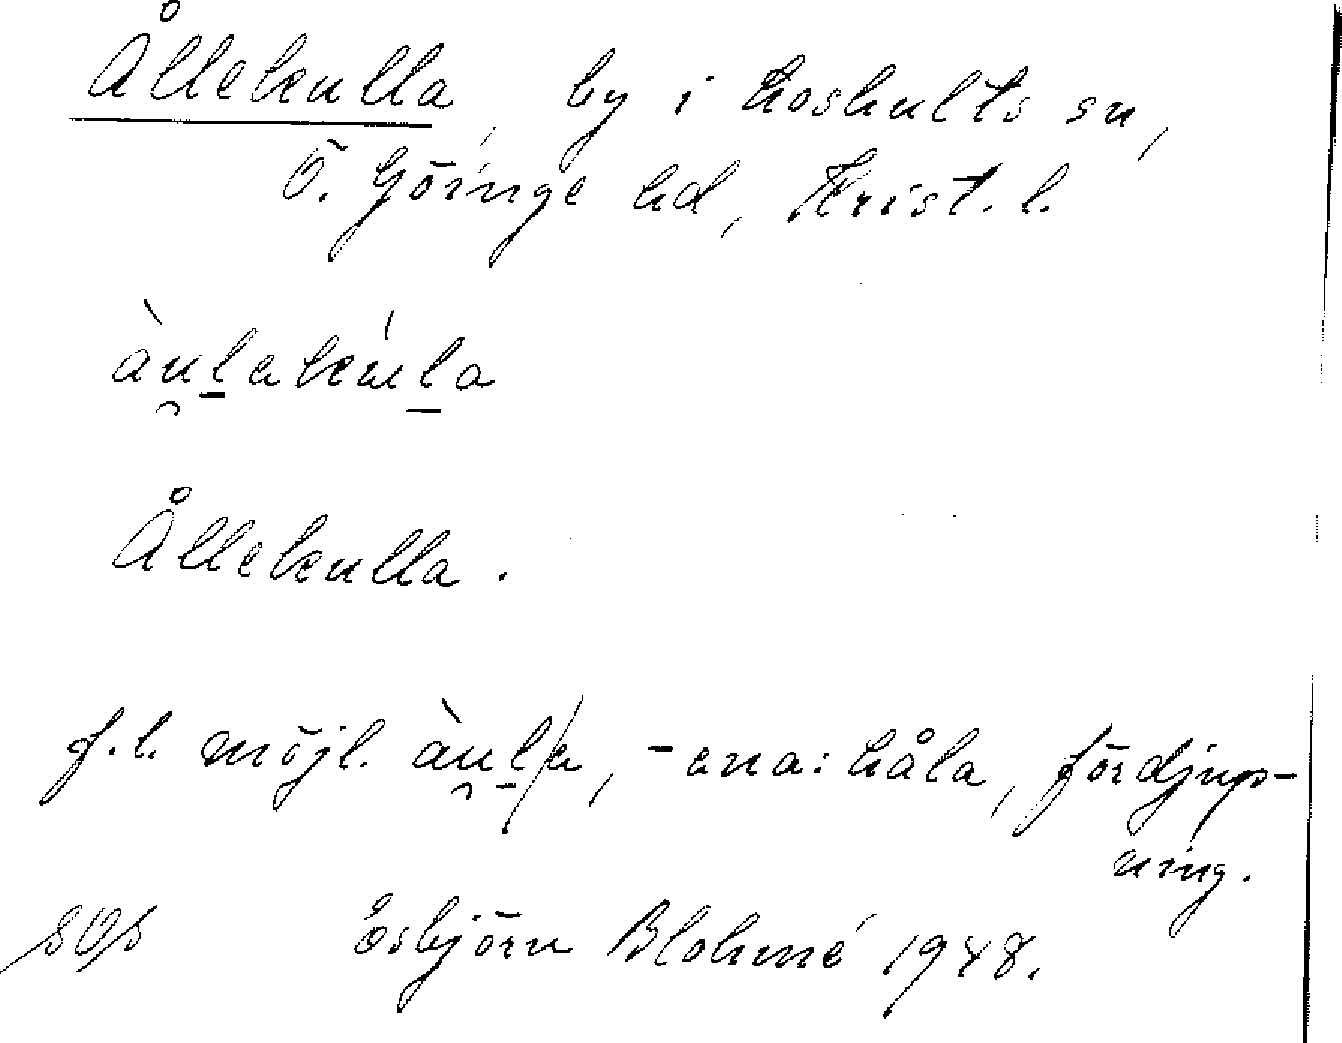 Ållekulla, by i Loshults sn,
Ö. Göinge hd, Krist. l.
àu̯l̠ekúl̠a
Ållekulla.
f.l. möjl. àu̯l̠/a, -ena: håla, fördjup-
ning.
SOS Esbjörn Blohmé 1948.